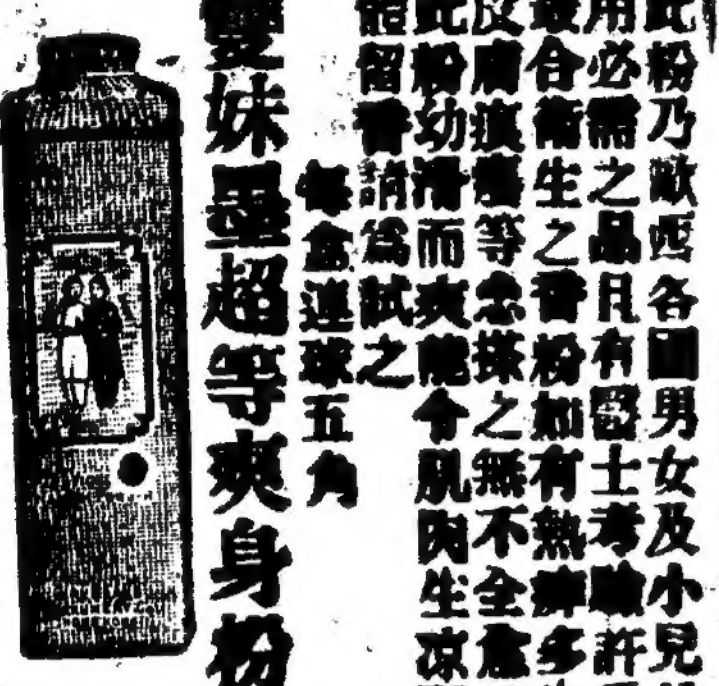 此粉乃歐西各國男女及小兒
用必需之品凡有醫士考驗許
最合衛生之香粉如有熱痱多
皮膚痕癢等症搽之無不全愈
此粉幼滑而爽能令肌肉生凉
能留香請爲試之
每盒連球五角
雙妹嚜超等爽身粉